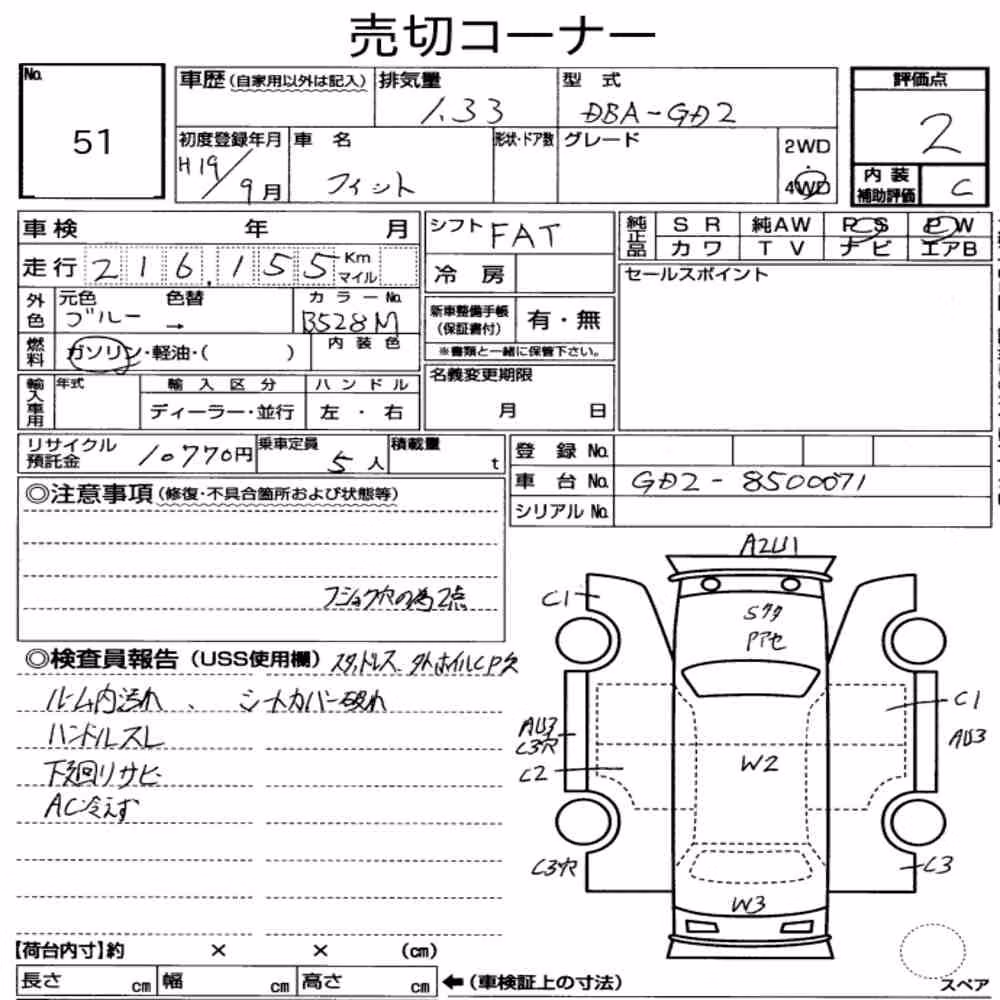 売切コーナー
No.
51
車歴(自家用以外は記入)
排気量
1.33
型式
DBA-GD2
評価点
2
初度登録年月
H19/9月
車名
フィット
形状・ドア数
グレード
2WD
・
4WD
内装
補助評価
C
車検 年 月
シフト
FAT
純正品
SR 純AW PS PW
カワ TV ナビ エアB
走行 216,155 Km
マイル
冷房
セールスポイント
外色
元色 色替
ブルー →
カラーNo.
B528M
新車整備手帳
(保証書付)
有・無
※書類と一緒に保管下さい。
燃料
ガソリン・軽油・( )
内装色
輸入車用
年式
輸入区分
ディーラー・並行
ハンドル
左・右
名義変更期限
月 日
リサイクル
預託金
10770円
乗車定員
5人
積載量
t
登録No.
車台No.
GD2-8500071
シリアルNo.
◎注意事項(修復・不具合箇所および状態等)
フショク穴の為2点
◎検査員報告(USS使用欄) スタッドレス、タトホイルCP欠
ルーム内汚れ、シートカバー破れ
ハンドルスレ
下廻りサビ
AC冷えず
A2U1
C1
Sワク
Pアセ
AU3
C3穴
C2
W2
C1
AU3
C3穴
W3
C3
スペア
【荷台内寸】約 × × (cm)
長さ cm 幅 cm 高さ cm ←(車検証上の寸法)